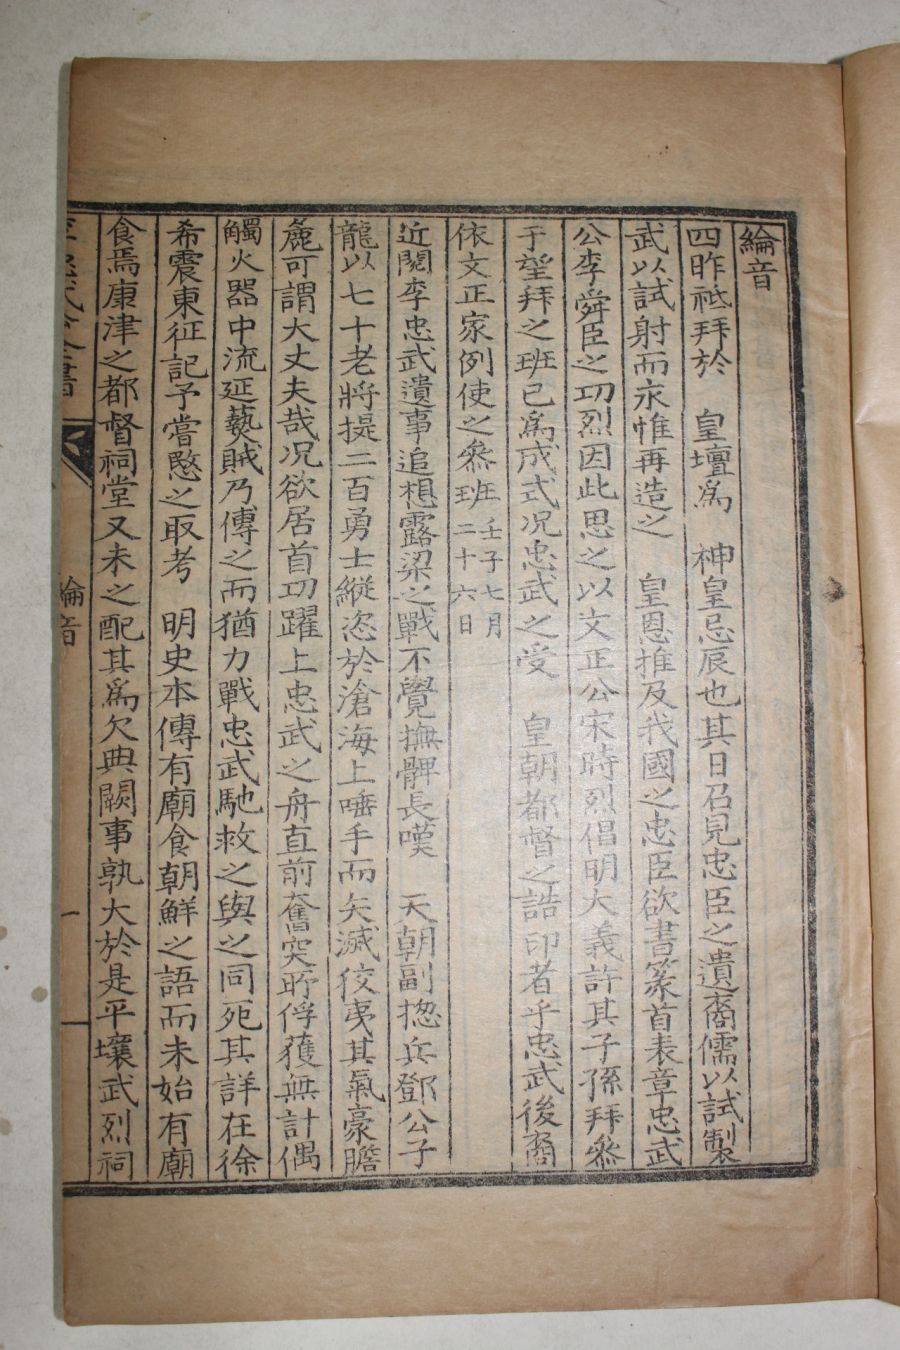 綸音
四昨祗拜於　皇壇爲　神皇忌辰也其日召見忠臣之遺裔儒以試製
武以試射而永惟再造之　皇恩推及我國之忠臣欲書篆首表章忠武
公李舜臣之功烈因此思之以文正公宋時烈倡明大義許其子孫拜叅
于望拜之班已爲成式况忠武之受　皇朝都督之誥印者乎忠武後裔
依文正家例使之叅班壬子七月二十六日
近閱李忠武遺事追想露梁之戰不覺撫髀長嘆　天朝副摠兵鄧公子
龍以七十老將提二百勇士縱恣於滄海上唾手而矢滅狡夷其氣豪膽
麄可謂大丈夫哉况欲居首功躍上忠武之舟直前奮突所俘獲無計偶
觸火器中流延爇賊乃傅之而猶力戰忠武馳救之與之同死其詳在徐
希震東征記予嘗愍之取考　明史本傳有廟食朝鮮之語而未始有廟
食焉康津之都督祠堂又未之配其爲欠典闕事孰大於是平壤武烈祠
李忠武公全書
綸音
一